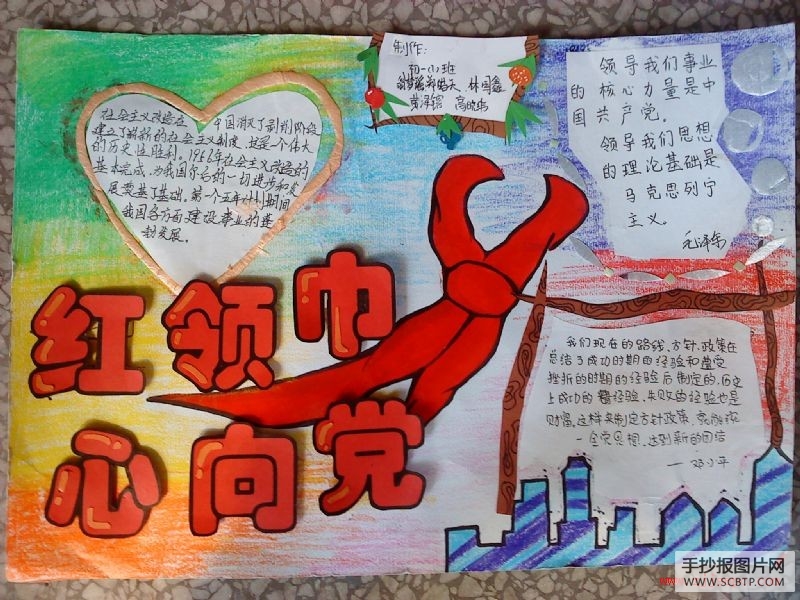 制作:
初一(1)班
林国鑫
社会主义改造在
中国消灭了剥削阶级
建立了崭新的社会主义制度，这是一个伟大
的历史性胜利。1956年社会主义改造的
基本完成，为我国今后的一切进步和发
展奠基了基础。第一个五年计划期间
我国各方面建设事业的蓬
勃发展。
领导我们事业
的核心力量是中
国共产党。
领导我们思想
的理论基础是
马克思列宁
主义。
毛泽东
红领巾
心向党
我们现在的路线、方针、政策在
总结了成功时期的经验和遭受
挫折的时期的经验后制定的，历史
上成功的经验、失败的经验也是
财富，这样来制定方针政策，就能统
一全党思想，达到新的团结
——邓小平
手抄报图片网
WWW.SCBTP.COM